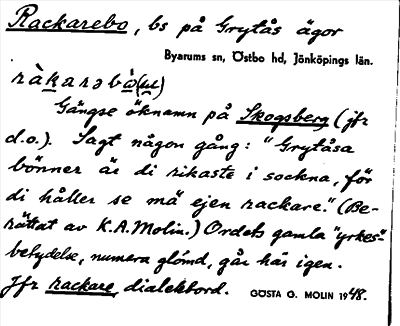 Rackarebo, bs på Grytås ägor
Byarums sn, Östbo hd, Jönköpings län.
Gängse öknamn på Skogsberg (jfr
d.o.). Sagt någon gång: "Grytåsa
bönner är di rikaste i sockna, för
di håller se mä ejen rackare." (Be-
rättat av K.A. Molin.) Ordets gamla "yrkes"-
betydelse, numera glömd, går här igen.
Jfr rackare, dialektord. GÖSTA G. MOLIN 1948.